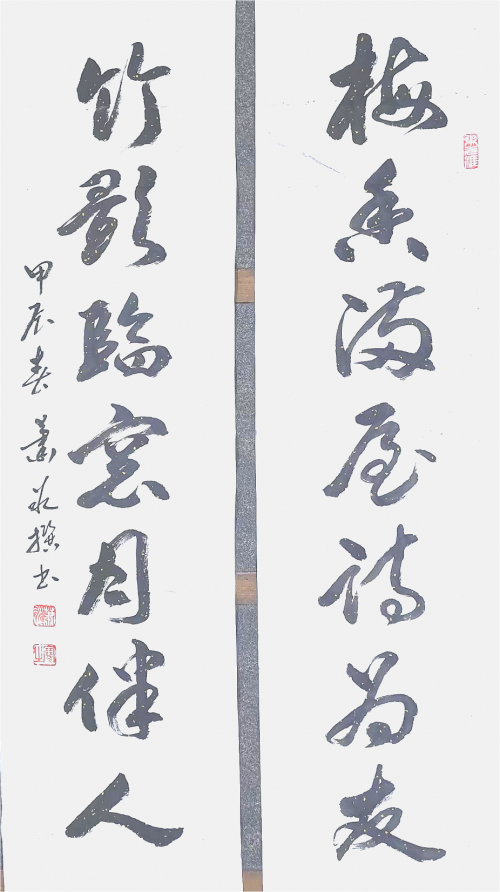 梅香满屋诗为友
竹影临窓月伴人
甲辰春
撰书